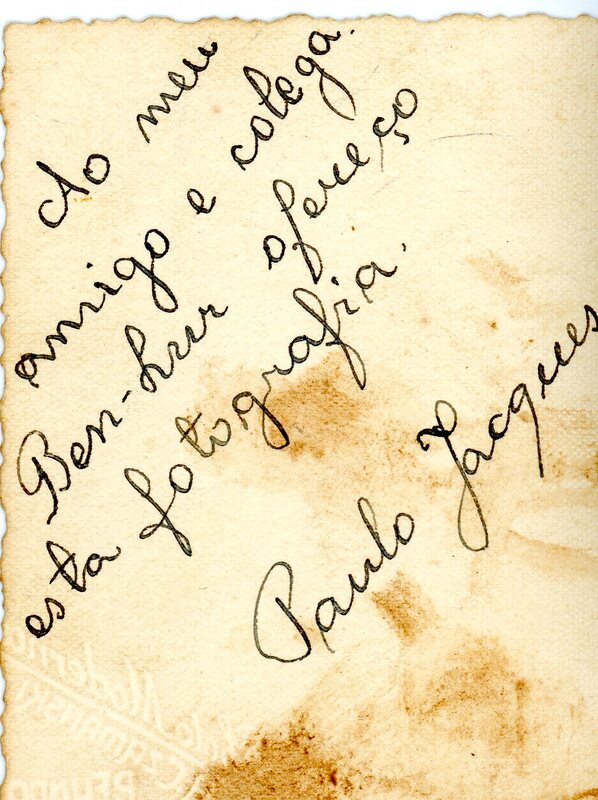 Ao meu
amigo e colega.
Ben-hur ofereço
esta fotografia.
Paulo Jacques